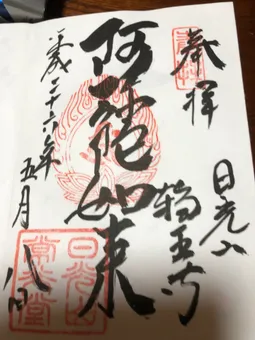 奉拝
日光山
輪王寺
阿弥陀如来
平成二十六年
五月八日
日光山
常行堂